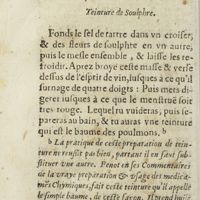 Teinture de Soulphre.
Fonds le sel de tartre dans vn croiset,
& des fleurs de soulphre en vn autre,
puis le mesle ensemble, & laisse les re-
froidir. Aprez broyé ceste masse & verse
dessus de l'esprit de vin, iusques à ce qu'il
surnage de quatre doigts: Puis mets di-
gerer iusques à ce que le menstruë soit
tres rouge. Lequel tu vuideras, puis se-
pareras au bain, & tu auras vne teinture
qui est le baume des poulmons. b
b La pratique de ceste preparation de tein-
ture ne reussit pas bien, partant il en faut subst-
tituer vne autre. Penot en ses Commentaires
de la vraye preparation & vsage des medica-
mẽs Chymiques, fait ceste teinture qu'il appelle
le simple baume, de ceste façon. Il prend huile